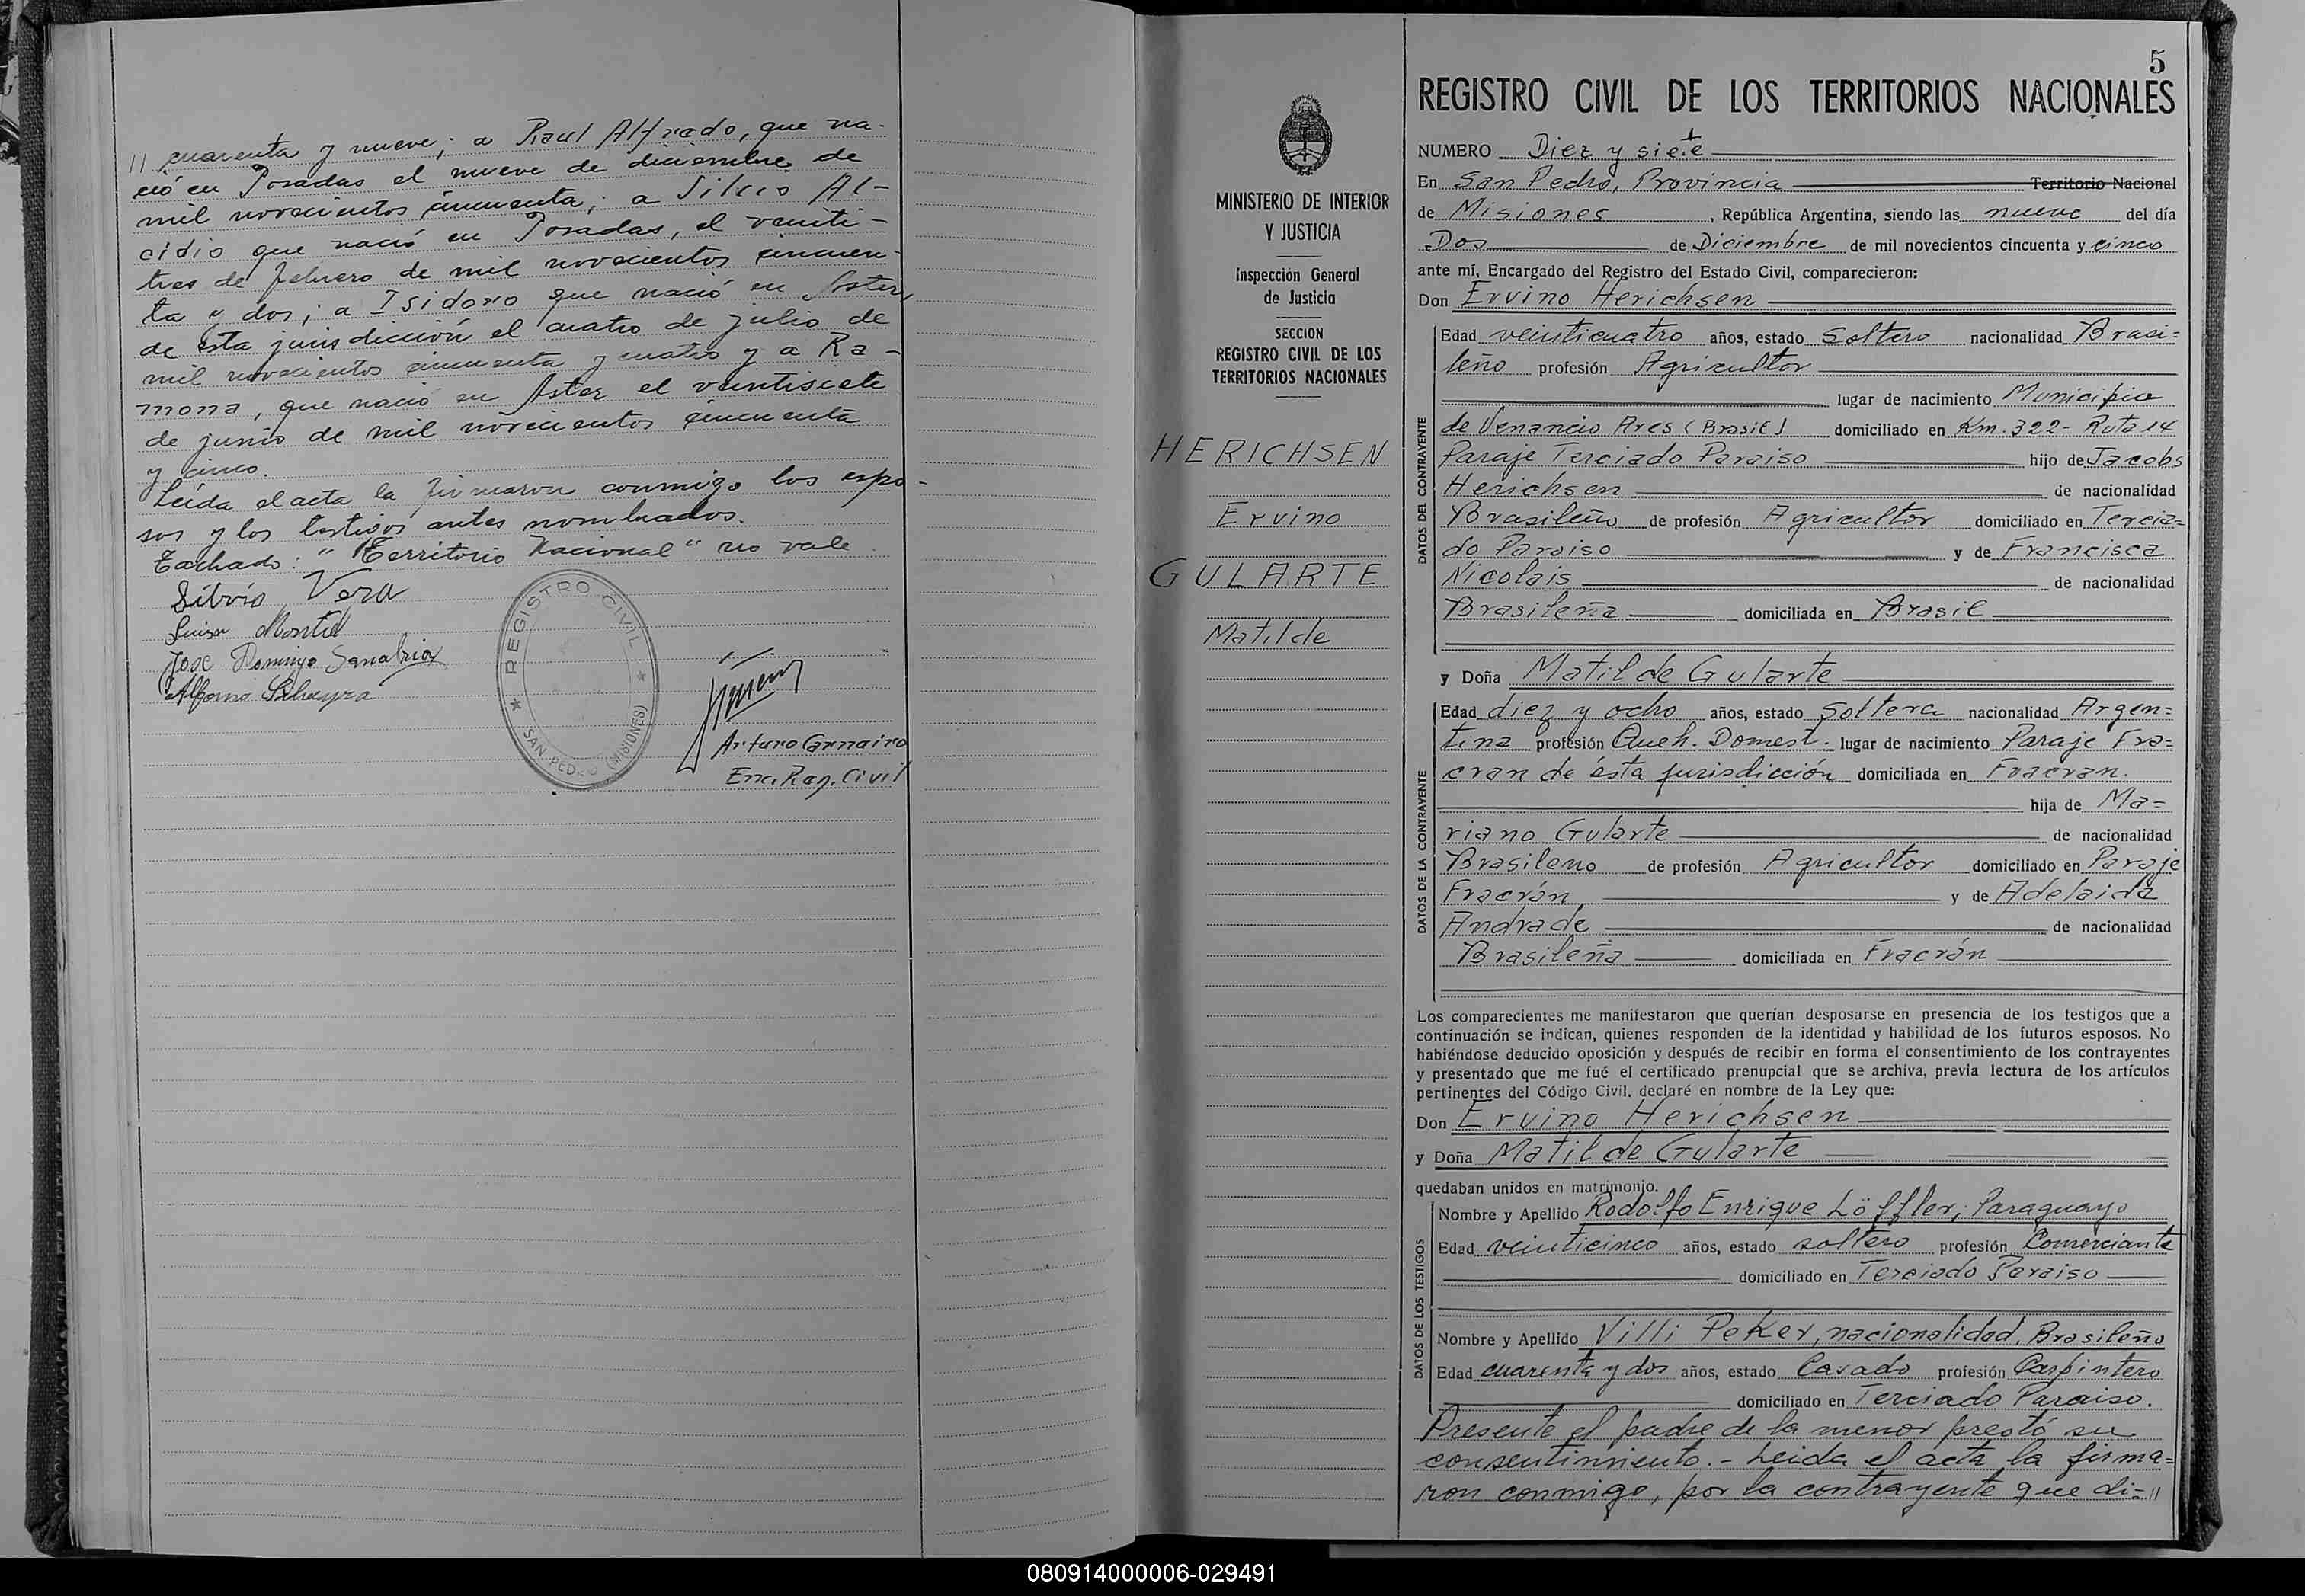 // cuarenta y nueve; a Raul Alfredo, que na-
ció en Posadas el nueve de diciembre de
mil novecientos cincuenta; a Silcio Al-
cidio que nació en Posadas, el veinti-
tres de febrero de mil novecientos cincuen-
ta y dos; a Isidoro que nació en Aster,
de esta jurisdicción el cuatro de julio de
mil novecientos cincuenta y cuatro y a Ra-
mona, que nació en Aster el veintisiete
de junio de mil novecientos cincuenta
y cinco.
Leída el acta la firmaron conmigo los espo-
sos y los testigos antes nombrados.
Tachado: "Territorio Nacional" no vale.
Silvio Vera
Luisa Montiel
Jose Domingo Sanabria
Alfonso
REGISTRO CIVIL
SAN PEDRO (MISIONES)
Arturo Carnairo
Enc. Reg. Civil
MINISTERIO DE INTERIOR
Y JUSTICIA
Inspección General
de Justicia
SECCION
REGISTRO CIVIL DE LOS
TERRITORIOS NACIONALES
HERICHSEN
Ervino
GULARTE
Matilde
5
REGISTRO CIVIL DE LOS TERRITORIOS NACIONALES
NUMERO Diez y siete
En San Pedro, Provincia Territorio Nacional
de Misiones, República Argentina, siendo las nueve del día
Dos de Diciembre de mil novecientos cincuenta y cinco
ante mí, Encargado del Registro del Estado Civil, comparecieron:
Don Ervino Herichsen
DATOS DEL CONTRAYENTE
Edad veinticuatro años, estado Soltero nacionalidad Brasi=
leño profesión Agricultor
lugar de nacimiento Municipio
de Venancio Ares (Brasil) domiciliado en Km. 322- Ruta 14
Paraje Terciado Paraiso hijo de Jacobs
Herichsen de nacionalidad
Brasileño de profesión Agricultor domiciliado en Tercia=
do Paraiso y de Francisca
Nicolais de nacionalidad
Brasileña domiciliada en Brasil
y Doña Matilde Gularte
DATOS DE LA CONTRAYENTE
Edad diez y ocho años, estado Soltera nacionalidad Argen=
tina profesión Queh. Domest. lugar de nacimiento Paraje Fra=
cran de ésta jurisdicción domiciliada en Fracran.
hija de Ma=
riano Gularte de nacionalidad
Brasileno de profesión Agricultor domiciliado en Paraje
Fracrán, y de Adelaida
Andrade de nacionalidad
Brasileña domiciliada en Fracrán
Los comparecientes me manifestaron que querían desposarse en presencia de los testigos que a
continuación se indican, quienes responden de la identidad y habilidad de los futuros esposos. No
habiéndose deducido oposición y después de recibir en forma el consentimiento de los contrayentes
y presentado que me fué el certificado prenupcial que se archiva, previa lectura de los artículos
pertinentes del Código Civil, declaré en nombre de la Ley que:
Don Ervino Herichsen
y Doña Matilde Gularte
quedaban unidos en matrimonio.
DATOS DE LOS TESTIGOS
Nombre y Apellido Rodolfo Enrique Löffler; Paraguayo
Edad veinticinco años, estado soltero profesión Comerciante
domiciliado en Terciado Paraiso
Nombre y Apellido Villi Peker, nacionalidad, Brasileño
Edad cuarenta y dos años, estado Casado profesión Carpintero
domiciliado en Terciado Paraiso.
Presente el padre de la menor prestó su
consentimiento.- Leida el acta la firma=
ron conmigo, por la contrayente que di=//
080914000006-029491